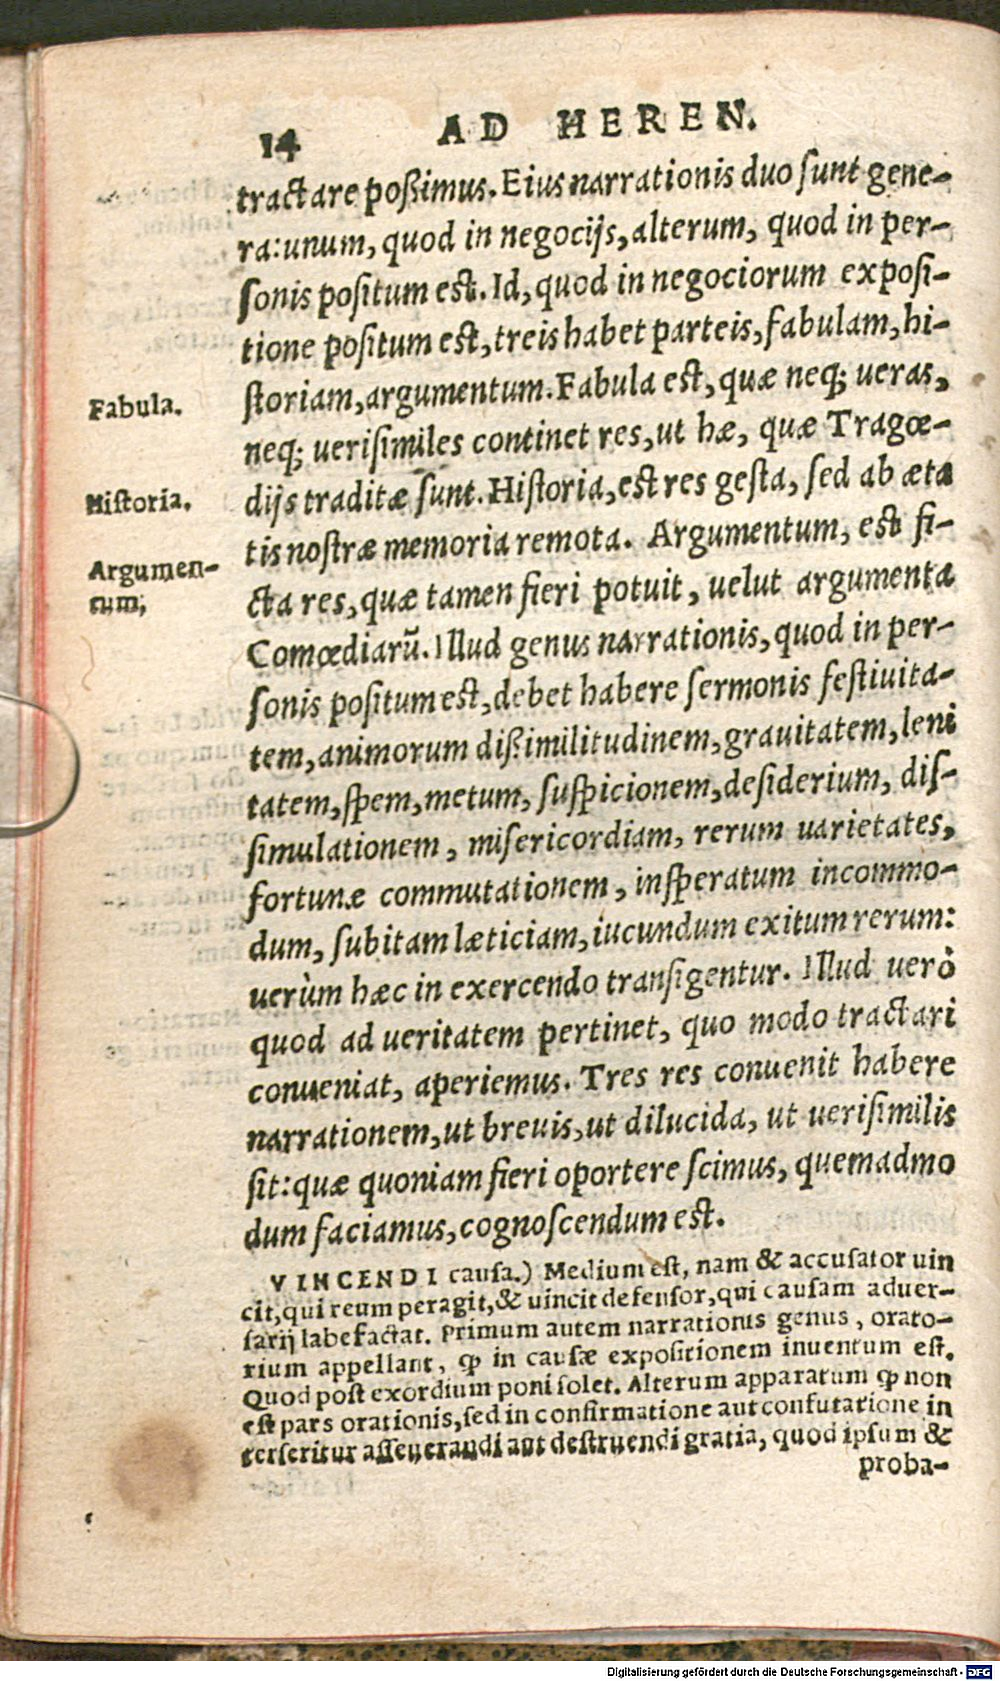 14 AD HEREN.
tractare poßimus. Eius narrationis duo sunt gene-
ra: unum, quod in negocijs, alterum, quod in per-
sonis positum est. Id, quod in negociorum exposi-
tione positum est, treis habet parteis, fabulam, hi-
Fabula.
storiam, argumentum. Fabula est, quæ neq; ueras,
neq; uerisimiles continet res, ut hæ, quæ Tragœ-
Historia.
dijs traditæ sunt. Historia, est res gesta, sed ab æta
tis nostræ memoria remota. Argumentum, est fi-
Argumen-
tum,
cta res, quæ tamen fieri potuit, uelut argumenta
Comœdiarũ. Illud genus narrationis, quod in per-
sonis positum est, debet habere sermonis festiuita-
tem, animorum dißimilitudinem, grauitatem, leni
tatem, spem, metum, suspicionem, desiderium, dis-
simulationem, misericordiam, rerum uarietates,
fortunæ commutationem, insperatum incommo-
dum, subitam læticiam, iucundum exitum rerum:
uerùm hæc in exercendo transigentur. Illud uerò
quod ad ueritatem pertinet, quo modo tractari
conueniat, aperiemus. Tres res conuenit habere
narrationem, ut breuis, ut dilucida, ut uerisimilis
sit: quæ quoniam fieri oportere scimus, quemadmo
dum faciamus, cognoscendum est.
VINCENDI causa.) Medium est, nam & accusator uin
cit, qui reum peragit, & uincit defensor, qui causam aduer-
sarij labefactat. Primum autem narrationis genus, orato-
rium appellant, ꝙ in causæ expositionem inuentum est.
Quod post exordium poni solet. Alterum apparatum ꝙ non
est pars orationis, sed in confirmatione aut confutatione in
terseritur asseuerandi aut destruendi gratia, quod ipsum &
proba-
Digitalisierung gefördert durch die Deutsche Forschungsgemeinschaft - DFG